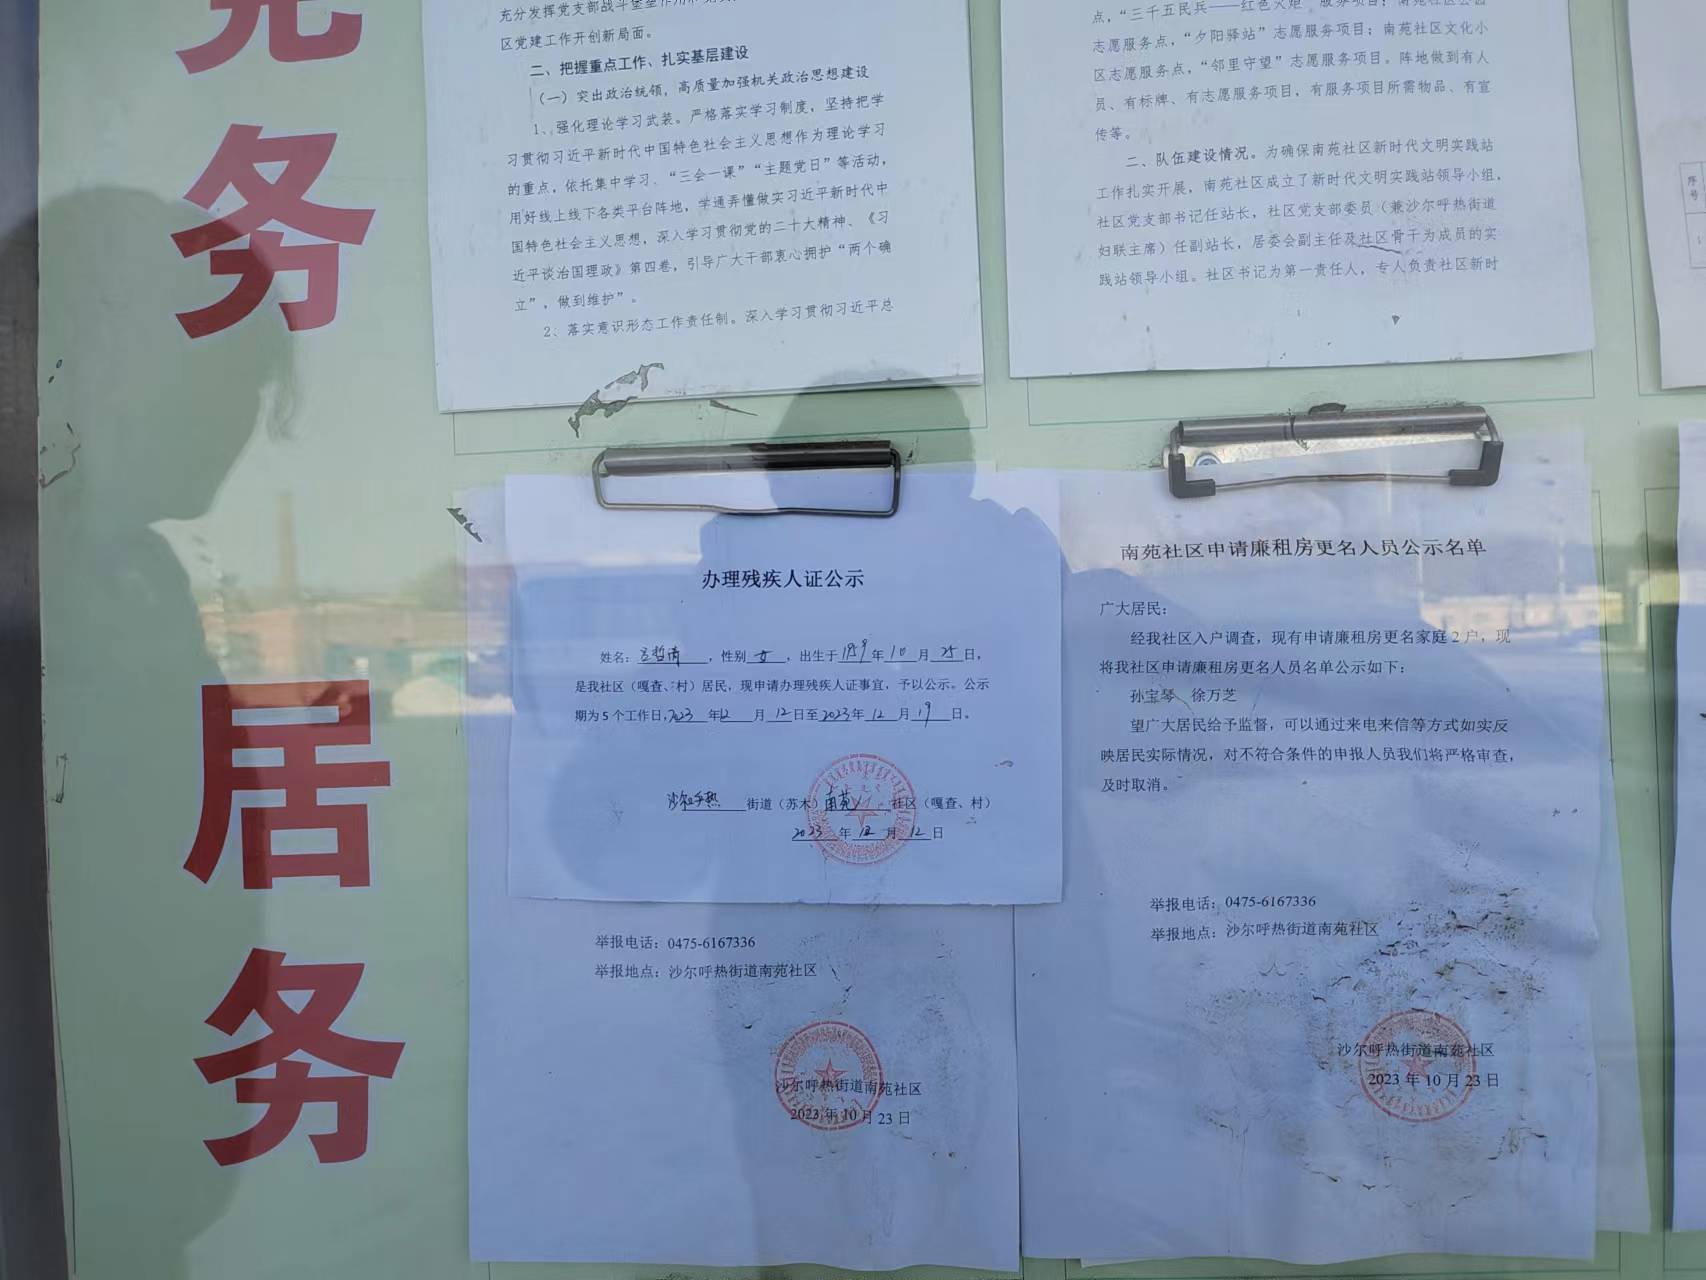 党
务
居
务
区党建工作开创新局面。
二、把握重点工作、扎实基层建设
（一）突出政治统领，高质量加强机关政治思想建设
1、强化理论学习武装。严格落实学习制度，坚持把学
习贯彻习近平新时代中国特色社会主义思想作为理论学习
的重点，依托集中学习、“三会一课”“主题党日”等活动，
用好线上线下各类平台阵地，学通弄懂做实习近平新时代中
国特色社会主义思想，深入学习贯彻党的二十大精神、《习
近平谈治国理政》第四卷，引导广大干部衷心拥护“两个确
立”，做到维护”。
2、落实意识形态工作责任制。深入学习贯彻习近平总
点，“三千五民兵——红色火炬”服务项目；南苑社区公园
志愿服务点，“夕阳驿站”志愿服务项目；南苑社区文化小
区志愿服务点，“邻里守望”志愿服务项目。阵地做到有人
员、有标牌、有志愿服务项目，有服务项目所需物品、有宣
传等。
二、队伍建设情况。为确保南苑社区新时代文明实践站
工作扎实开展，南苑社区成立了新时代文明实践站领导小组，
社区党支部书记任站长，社区党支部委员（兼沙尔呼热街道
妇联主席）任副站长，居委会副主任及社区骨干为成员的实
践站领导小组。社区书记为第一责任人，专人负责社区新时
序
号
1
办理残疾人证公示
姓名：，性别 女，出生于 年 10 月 25 日，
是我社区（嘎查、村）居民，现申请办理残疾人证事宜，予以公示。公示
期为 5 个工作日，2023 年 12 月 12 日至 2023 年 12 月 19 日。
沙尔呼热 街道（苏木）南苑 社区（嘎查、村）
2023 年 12 月 12 日
举报电话：0475-6167336
举报地点：沙尔呼热街道南苑社区
沙尔呼热街道南苑社区
2023 年 10 月 23 日
南苑社区申请廉租房更名人员公示名单
广大居民：
经我社区入户调查，现有申请廉租房更名家庭 2 户，现
将我社区申请廉租房更名人员名单公示如下：
孙宝琴、徐万芝
望广大居民给予监督，可以通过来电来信等方式如实反
映居民实际情况，对不符合条件的申报人员我们将严格审查，
及时取消。
举报电话：0475-6167336
举报地点：沙尔呼热街道南苑社区
沙尔呼热街道南苑社区
2023 年 10 月 23 日